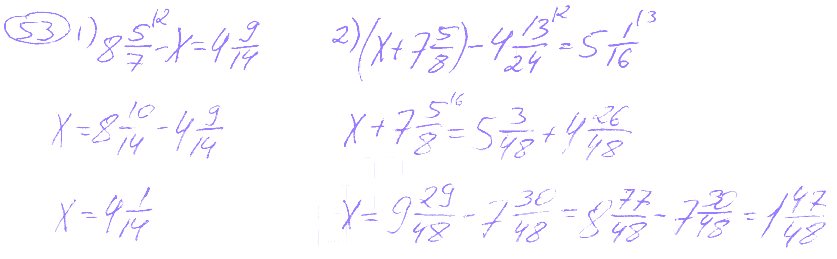 53 1) 8 5/7 ¹² - x = 4 9/14
x = 8 10/14 - 4 9/14
x = 4 1/14
2) (x + 7 5/8) - 4 13/24 ¹² = 5 1/16 ¹³
x + 7 5/8 ¹⁶ = 5 3/48 + 4 26/48
x = 9 29/48 - 7 30/48 = 8 77/48 - 7 30/48 = 1 47/48